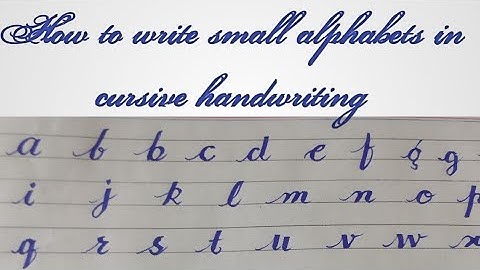 How to write small alphabets in
cursive handwriting
a b b c d e f g
i j k l m n o p
q r s t u v w x